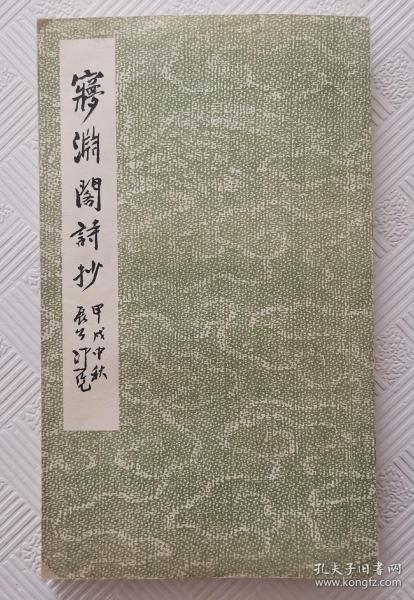 寱淵閣詩抄
甲戌中秋
孔夫子旧书网
www.kongfz.com